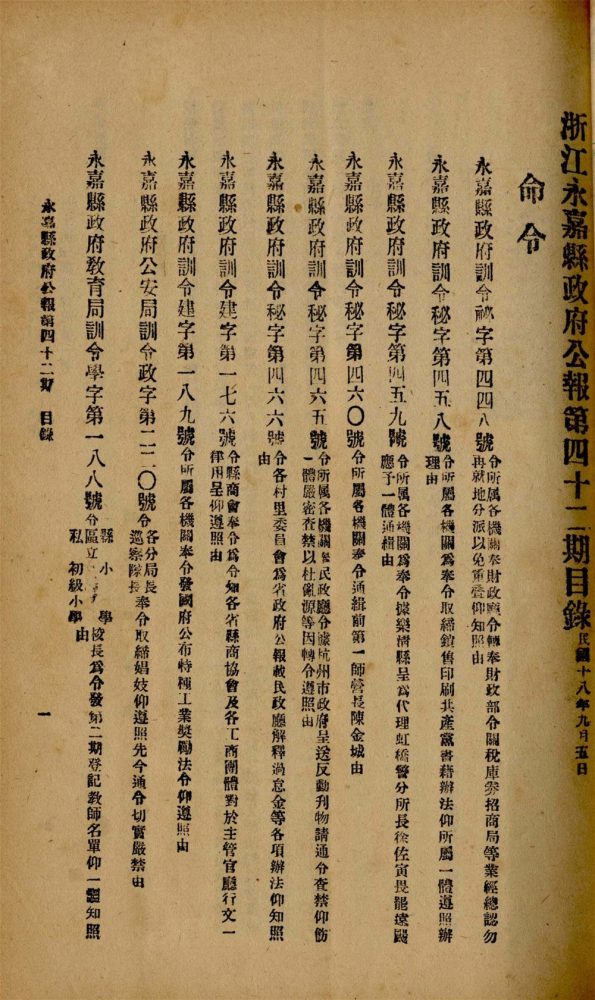 浙江永嘉縣政府公報第四十二期目錄 民國十八年九月五日
命令
永嘉縣政府訓令祕字第四四八號 令所屬各機關奉財政廳令轉奉財政部令關稅庫劵招商局等業經總認勿
再就地分派以免重叠仰知照由
永嘉縣政府訓令秘字第四五八號 令所屬各機關爲奉令取締銷售印刷共產黨書籍辦法仰所屬一體遵照辦
理由
永嘉縣政府訓令秘字第四五九號 令所屬各機關爲奉令據樂清縣呈爲代理虹橋警分所長徐佐寅畏罷遠颺
應予一體通緝由
永嘉縣政府訓令秘字第四六〇號 令所屬各機關奉令通緝前第一師營長陳金城由
永嘉縣政府訓令秘字第四六五號 令所屬各機關奉民政廳令據杭州市政府呈送反動刋物請通令查禁仰飭
一體嚴密查禁以杜亂源等因轉令遵照由
永嘉縣政府訓令秘字第四六六號 令各村里委員會爲省政府公報載民政廳解釋過怠金等各項辦法仰知照
由
永嘉縣政府訓令建字第一七六號 令縣商會奉令爲令知各省縣商協會及各工商團體對於主管官廳行文一
律用呈仰遵照由
永嘉縣政府訓令建字第一八九號 令所屬各機關奉令發國府公布特種工業奬勵法令仰遵照由
永嘉縣政府公安局訓令政字第二二〇號 令各分局長
巡察隊長 奉令取締娼妓仰遵照先今通令切實嚴禁由
永嘉縣政府敎育局訓令學字第一八八號 令縣
區立小學
私 初級小學 校長爲令發第二期登記敎師名單仰一體知照
由
永嘉縣政府公報第四十二期 目錄 一